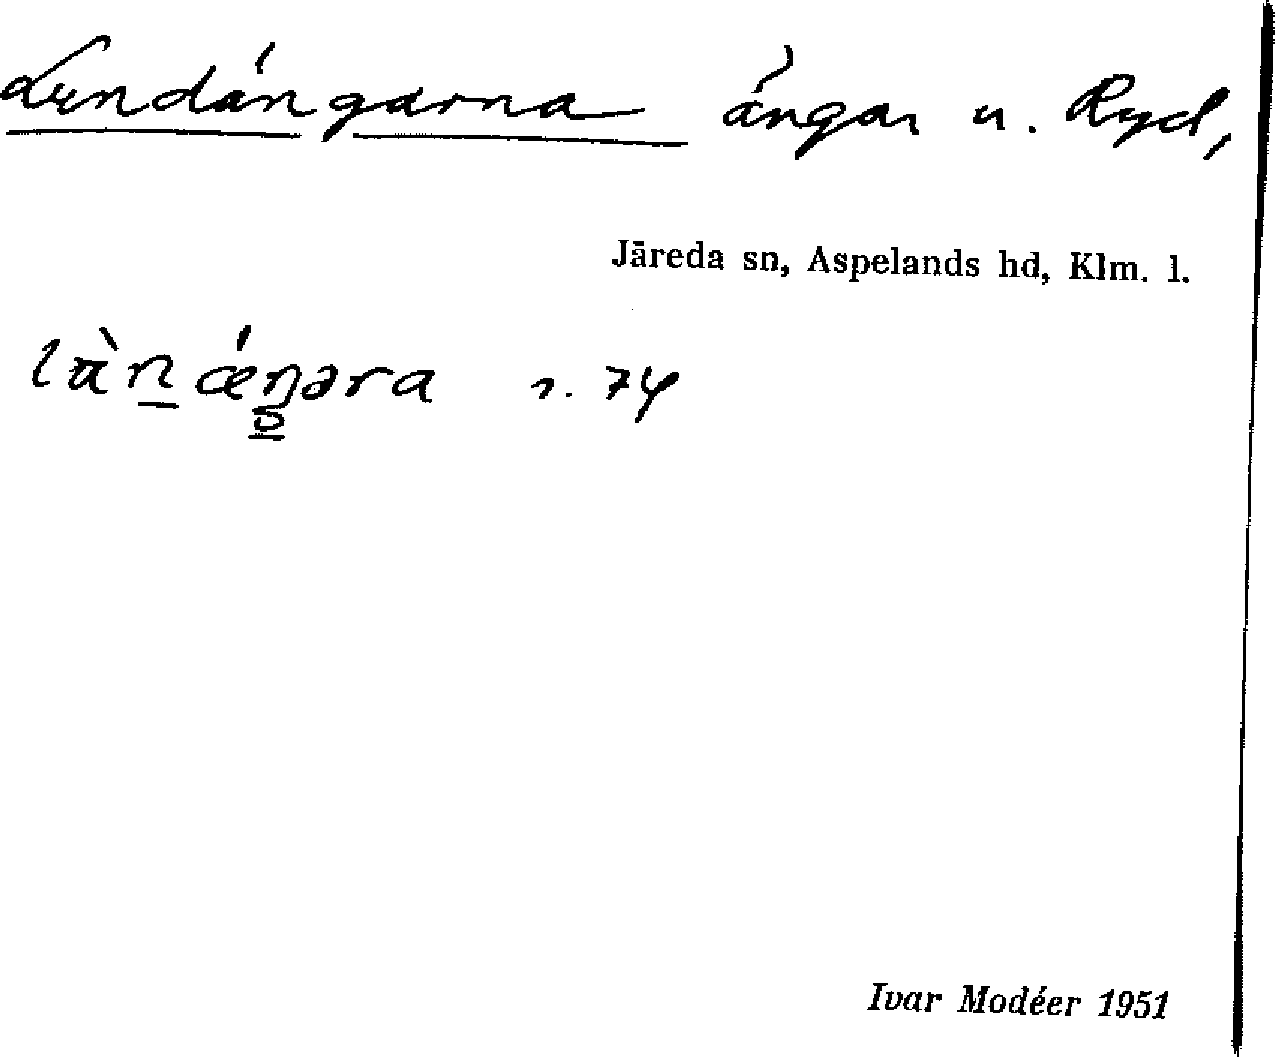 Lundängarna ängar u. Ryd,
Järeda sn, Aspelands hd, Klm. l.
r. 74
Ivar Modéer 1951